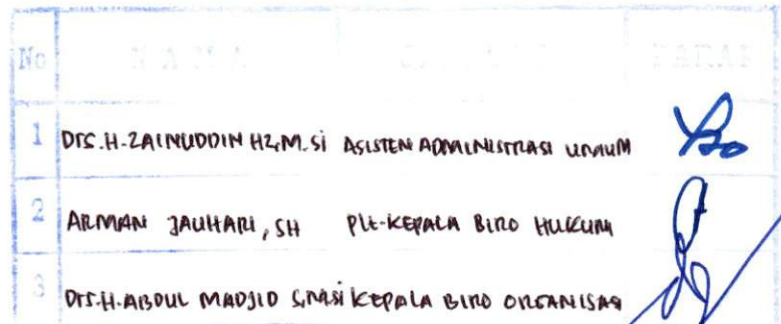 No NAMA JABATAN PARAF
1 Drs.H.ZAINUDDIN HZ,M.Si ASISTEN ADMINISTRASI UMUM
2 ARMAN JAUHARI, SH Plt.KEPALA BIRO HUKUM
3 Drs.H.ABDUL MADJID S,M.Si KEPALA BIRO ORGANISASI